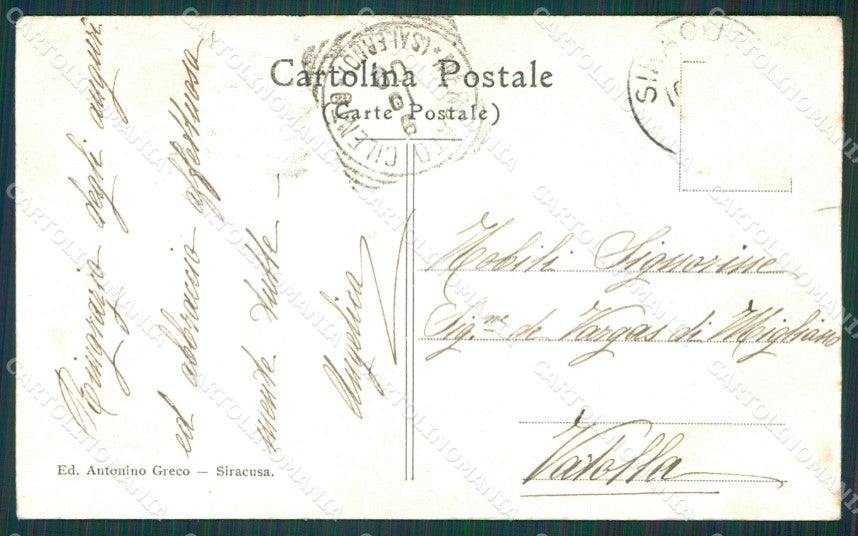 Cartolina Postale
(Carte Postale)
Ringrazio degli auguri
ed abbraccio affettuosa
mente tutte –
Angelica
Nobili Signorine
Sig.ne de Vargas di Migliano
Vatolla
Ed. Antonino Greco — Siracusa.
CILENTO
(SALERNO)
SIRACU
CARTOLINOMANIA